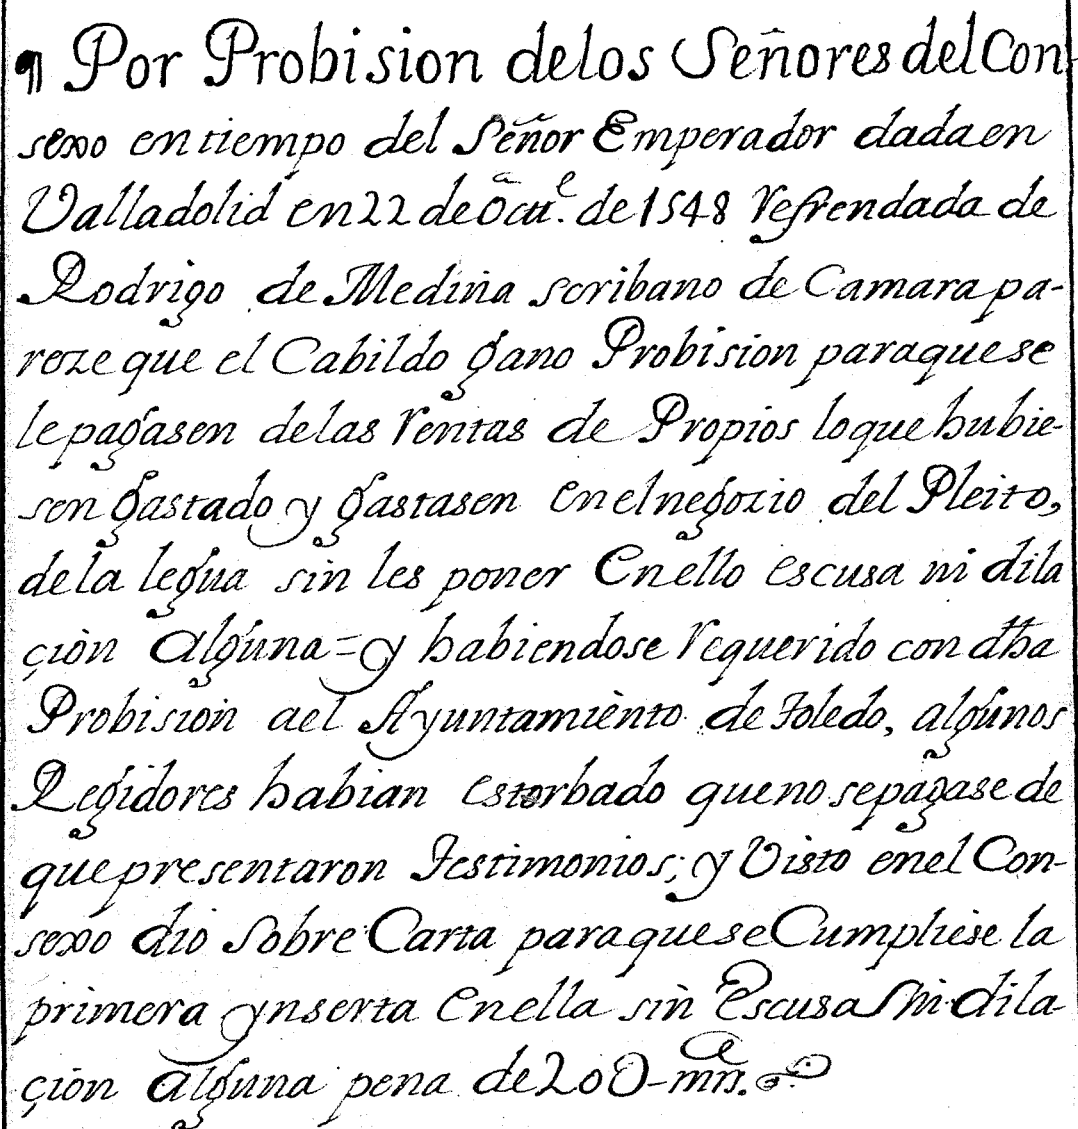 ¶ Por Probision delos Señores del Con-
sexo en tiempo del Señor Emperador dada en
Valladolid en 22 de Octᵉ. de 1548 Refrendada de
Rodrigo de Medina scribano de Camara pa-
reze que el Cabildo gano Probision paraquese
le pagasen delas rentas de Propios loque hubie-
sen gastado y gastasen en el negozio del Pleito,
de la legua sin les poner Enello escusa ni dila
çion Alguna = y habiendose requerido con dha
Probision ael Ayuntamiento de Toledo, algunos
Regidores habian estorbado que no sepagase de
que presentaron Testimonios; y Visto enel Con-
sexo dio Sobre Carta paraquese Cumpliese la
primera ynserta Enella sin Escusa Ni dila
çion alguna pena de 200 mrs.